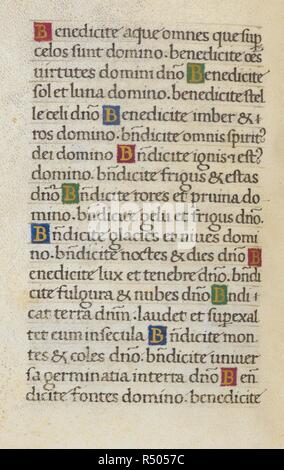 Benedicite aque omnes que sup
celos sunt domino. benedicite oẽs
virtutes domini dño Benedicite
sol et luna domino. benedicite stel
le celi dño Benedicite imber & +
ros domino. bñdicite omnis spirit?
dei domino Bñdicite ignis ⁊ est?
domino. bñdicite frigus & estas
dño Bñdicite rores et pruina do
mino. bñdicite gelu et frigus dño.
Bñdicite glacies et niues domi
no. bñdicite noctes & dies dño B
enedicite lux et tenebre dño. bñdi
cite fulgura & nubes dño Bñdi +
cat terra dñm. laudet et superexal
tet eum in secula Bñdicite mon-
tes & coles dño. bñdicite uniuer
sa germinatia in terra dño Ben
dicite fontes domino. benedicite
alamy
Image ID: R5057C
www.alamy.com